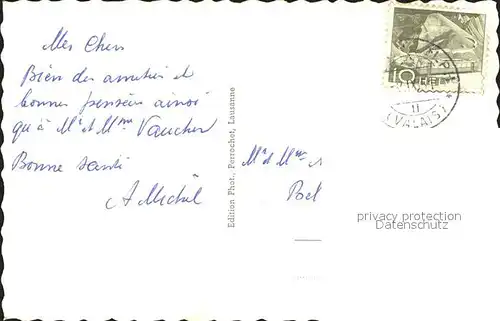 Mes Chers
Bien des amitiés et
bonnes pensées ainsi
qu'à Mr et Mme Vaucher
Bonne santé
A Michel
Edition Phot., Perrochet, Lausanne
Mr et Mme
Bel
10 HELVETIA
(VALAIS)
privacy protection
Datenschutz